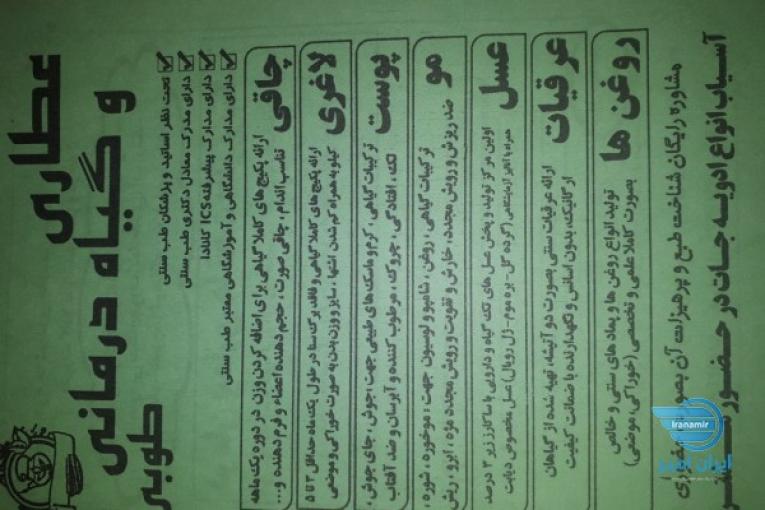 عطاری
و گیاه درمانی
طوبی
تحت نظر اساتید و پزشکان طب سنتی
دارای مدرک معادل دکتری طب سنتی
دارای مدارک پیشرفته ICS کانادا
دارای مدارک دانشگاهی و آموزشگاهی معتبر طب سنتی
چاقی
ارائه پکیج های کاملا گیاهی برای اضافه کردن وزن در دوره یک ماهه
تناسب اندام، چاقی صورت، حجم دهنده اعضاء و فرم دهنده و...
لاغری
ارائه پکیج های کاملا گیاهی و فاقد برگ سنا در طول یک ماه حداقل ۳ تا ۵
کیلو به همراه کم شدن اشتها، سایز و وزن بدن به صورت خوراکی و موضعی
پوست
ترکیبات گیاهی، کرم و ماسک های طبیعی جهت: جوش، جای جوش،
لک، افتادگی، چروک، مرطوب کننده و آبرسان و ضد آفتاب
مو
ترکیبات گیاهی، روغن، شامپو و لوسیون جهت: موخوره، شوره،
ضد ریزش و رویش مجدد، خارش و تقویت و رویش مجدد مژه، ابرو، ریش
عسل
اولین مرکز تولید و پخش عسل های تک گیاه و دارویی با ساکارز زیر ۳ درصد
همراه با آنالیز آزمایشگاهی (گرده گل - بره موم - ژل رویال) عسل مخصوص دیابت
عرقیات
ارائه عرقیات سنتی بصورت دو آتیشه، تهیه شده از گیاهان
ارگانیک، بدون اسانس و نگهدارنده با ضمانت کیفیت
روغن ها
تولید انواع روغن ها و پمادهای سنتی و خالص
بصورت کاملا علمی و تخصصی (خوراکی، موضعی)
مشاوره رایگان شناخت طبع و پرهیزات آن بصورت
آسیاب انواع ادویه جات در حضور
Iranamir
ایران امیر